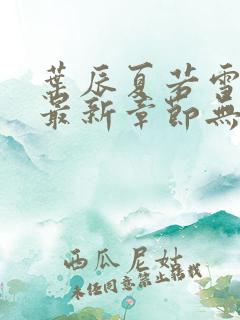 葉辰夏若雪
最新章節無
西瓜尼姑
未经同意禁止转载